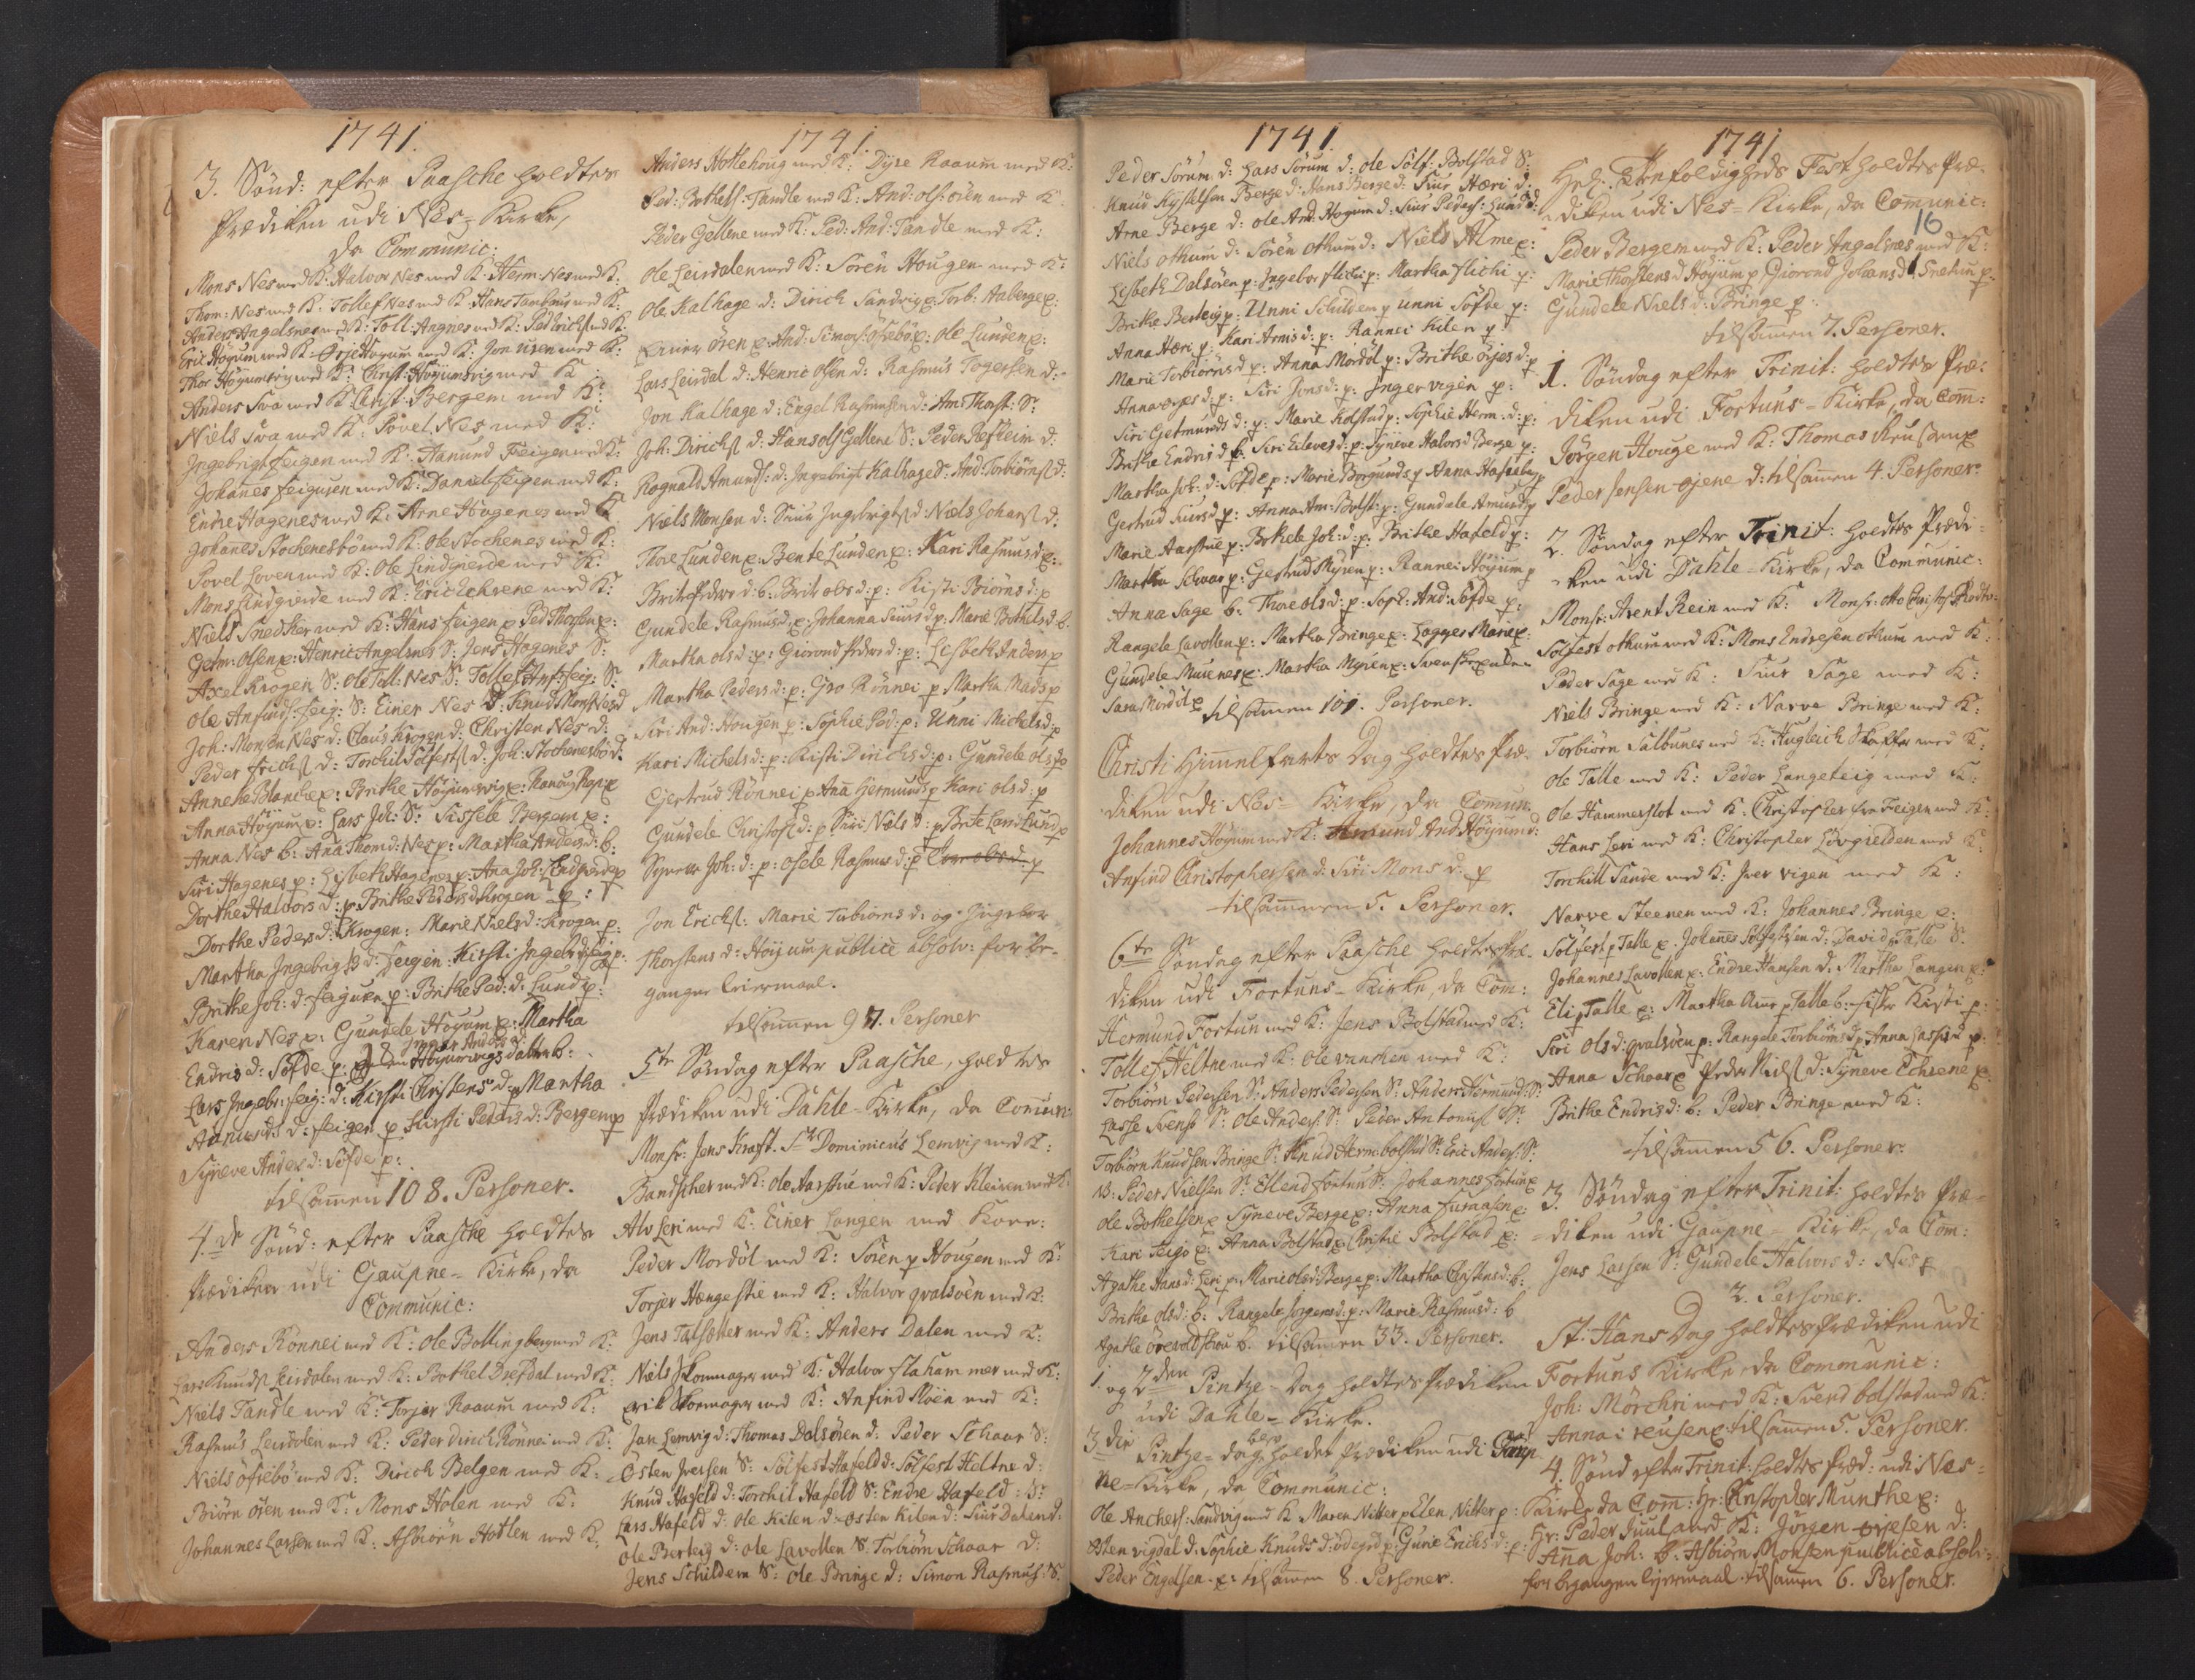 1741.
3. Sönd: efter Paasche holdtes
Prædiken udi Nes-Kirke,
da Communic:
Mons Nes med K: Halvor Nes med K: Herm: Nes med K:
Thom: Nes med K: Tollef Nes med K: Hans med K:
Anders Angelsnes med K: Toll: Angnes med K: med K:
Eric Höyum med K: Örje Höyum med K: Jon med K:
Thor Höyumsvig med K: Christ: Höyumsvig med K:
Anders Sva med K: Christ: Bergem med K:
Niels Sva med K: Povel Nes med K:
Ingebrigt Feigen med K: Aamund Feigen med K:
Johanes Feigusen med K: Daniel Feigen med K:
Endre Hagenes med K: Arne Hagenes med K:
Johanes Stochenesbö med K: Ole Stochenes med K:
Povel Loven med K: Ole Lindgierde med K:
Mons Lindgierde med K: Eric Echrene med K:
Niels Snedker med K: Hans Feigen p Ped Thorsen p:
Getm: Olsen p: Henric Angelsnes S: Jens Hagenes S:
Axel Krogen S: Ole Toll: Nes S: Tollef Anf: Feig: S:
Ole Anfinds: Feig: S: Einer Nes d: Knud Mons Nes d
Joh: Monsen Nes d: Claus Krogen d: Christen Nes d:
Peder Erichs d: Torchil Sölfests d: Joh: Stochenesbö d:
Anneke Blanche p: Brithe Höyumsvig p:
Anna Höyum p: Lars Joh: S: Sissele Bergem p:
Anna Nes b: Ana Thom d: Nes p: Martha Anders d: b:
Siri Hagenes p: Lisbeth Hagenes p: Ana Joh: Lindgierde p
Dorthe Halvors d: p: Brithe Peders d Krogen p:
Dorthe Peders d: Krogen: Marie Niels d: Krogen p:
Martha Ingebrigts d: Feigen: Kirsti Ingebr: d: Feig p:
Brithe Joh: d: Feigusen p: Brithe Ped: d: Lund p:
Karen Nes p: Gundele Höyum p: Martha
Inger Anders d:
Endris d: Söfde p: Höyumsvigs datter b:
Lars Ingebr: Feig: d: Kirsti Christens d: p Martha
Aamunds d: Feigen p Kirsti Peders d: Bergem p
Syneve Anders d: Söfde p:
tilsamen 108. Personer.
4de Sönd: efter Paasche holdtes
Prædiken udi Gaupne-Kirke, da
Communic:
Anders Rönnei med K: Ole Bollingberg med K:
Lars Knuds Leirdalen med K: Bothel Drefdal med K:
Niels Tandle med K: Torjer Raaum med K:
Rasmus Leirdalen med K: Peder Dirich Rönnei med K:
Niels Öfrebö med K: Dirich Belgen med K:
Biörn Ören med K: Mons Holen med K:
Johannes Larsen med K: Asbiörn Hotlen med K:
1741.
Anders Hotlehoug med K: Dyre Raaum med K:
Ped: Bothels: Tandle med K: And: Ols: Ören med K:
Peder Gellene med K: Ped: And: Tandle med K:
Ole Leirdalen med K: Sören Hougen med K:
Ole Kalhage d: Dirich Sandvig p: Torb: Aaberge p:
Einer Ören p: And: Simons: Öfrebö p: Ole Lunden p:
Lars Leirdal d: Henric Olsen d: Rasmus Togersen d:
Jon Kalhage d: Engel Rasmusen d: Am: Thorst: S:
Joh: Dirichs d: Hans Ols Gellene S: Peder Refheim d:
Rognald Amunds: d: Ingebrigt Kalhage d: And: Torbiörns d:
Niels Monsen d: Siur Ingebrigts d: Niels Johans d:
Thore Lunden p: Bente Lunden p: Kari Rasmus d p:
Brite Peders d: b: Brite Ols d: p: Kisti Biörns d: p
Gundele Rasmus d: p: Johanna Siurs d p: Marie Bothels d b.
Martha Ols d: p: Giörond Peders d: p: Lisbeth Anders p
Martha Peders d: p: Gro Rönnei p Martha Mads p
Siri And: Hougen p: Sophie Ped: p: Unni Michels d: p
Kari Michels d: p: Kisti Dirichs d: p: Gundele Ols p
Gjertrud Rönnei p Ana Germunds p Kari Ols d: p
Gundele Christofs d: p Siri Niels d: p Brite Lars Lund p
Synneve Joh: d: p: Osele Rasmus d: p Tore Ols d: p
Jon Erichs: Marie Tubiorns d: og Ingebor
Thorstens d: Höyum publicè absolv: for be-
gangne leiermaal.
tilsamen 97. Personer
5te Söndag efter Paasche, holdtes
Prædiken udi Dahle-Kirke, da Comun:
Monsr: Jens Kraft. Sr Dominicus Lemvig med K:
Bandscher med K: Ole Aarstue med K: Peder Kleiven med K:
Alv Leri med K: Einer Langen med Kone:
Peder Mordöl med K: Sören p Hougen med K:
Torjer Hængestie med K: Halvor Qvalsöen med K:
Jens Talsætter med K: Anders Dalen med K:
Niels Skomager med K: Halvor Flahammer med K:
Erik Skoemager med K: Anfind Möen med K:
Jan Lemvig d: Thomas Dalsören d: Peder Schaar S:
Östen Iversen S: Sölfest Hafeld d: Sölfest Heltne d:
Knud Hafeld d: Torchil Hafeld S: Endre Hafeld: S:
Lars Hafeld d: Ole Kilen d: Östen Kilen d: Siur Dalen d:
Ole Berteig d: Ole Lavollen S: Torbiörn Schaar d:
Jens Schildern S: Ole Bringe d: Simon Rasmus: S:
1741.
Peder Sörum d: Lars Sörum d: Ole Sölf: Bolstad S:
Knud Kystelsen Berge d: Hans Berge d: Siur Hæri d:
Arne Berge d: Ole And: Höyum d: Siur Peders: Lund d:
Niels Othum d: Sören Othum d: Niels Alme p:
Lisbeth Dalsören p: Ingebor Flichi p: Martha Flichi p:
Brithe Berteig p: Unni Schilden p Unni Söfde p:
Anna Hæri p: Kari Arnis d: p: Rannei Kilen p:
Marie Torbiörns d p: Anna Mordöl p: Brithe Örjes d: p
Anna Örjes d: p: Siri Jons d: p: Inger Vigen p:
Siri Getmunds d: p: Marie Kolstad p: Sophie Herm: d: p:
Brithe Endris d p: Siri Eileves d: p: Syneve Halvors d Berge p:
Martha Joh: d: Söfde p: Marie Borgunds p Anna p
Gertrud Siurs d p: Anna Am: Bolst: p: Gundele Amunds p
Marie Aarstue p: Bothele Joh: d: p: Brithe Hafeld p:
Martha Schaar p: Gertrud Myren p: Rannei Höyium p
Anna Sage b: Thore Ols d: p: Soph: And: Söfde p:
Rangele Lavollen p: Martha Bringe p: Lagges Marie p:
Gundele Murenes p: Martha Myren p:
Sara Mordöl p tilsamen 101. Personer.
Christi Himmelfarts Dag holdtes Præ-
diken udi Nes-Kirke, da Comun:
Johannes Höyum med K: Amund And: Höyum d:
Anfind Christophersen d: Siri Mons d: p
tilsammen 5. Personer.
6te Söndag efter Paasche holdtes Præ-
diken udi Fortuns-Kirke, da Com:
Hermund Fortun med K: Jens Bolstad med K:
Tollef Heltne med K: Ole med K:
Torbiörn Pedersen S: Anders Pedersen S: Anders Hermund: S:
Lasse Svens S: Ole Anders: S: Peder Antonius S:
Torbiörn Knudsen Bringe S: Knud Herm: Bolstad S: Eric Anders: S:
Peder Nielsen S: Ellend Fortun S: Johannes Fortun p
Ole Bothelsen p Syneve Berge p: Anna Furaasen p:
Kari Teigo p: Anna Bolstad p Christie Bolstad p:
Agathe Hans d: Leri p: Marie Ols d: Berge p: Martha Christens d: b:
Brithe Ols d: b: Rangele Jörgens d: p: Marie Rasmus d: b
Agathe b: tilsamen 33. Personer.
1. og 2den Pintze-Dag holdtes Prædiken
udi Dahle-Kirke.
3die Pintze-dag blev holdet Prædiken udi Gaup
ne-Kirke, da Communic:
Ole Anchers: Sandvig med K Maren Nitter p Elen Nitter p:
Östen Vigdal d: Sophie Knuds d: Ödegrd p: Gurie Erichs d: p:
Peder Engelsen p: tilsamen 8. Personer.
1741
Hell: Trefoldigheds Fest holdtes Præ-
diken udi Nes-Kirke, da Communic:
16
Peder Bergem med K: Peder Angelsnes med K:
Marie Thorstens d Höyum p Giorond Johans d: Snetun p
Gundele Niels d: Bringe p:
tilsamen 7. Personer.
1. Söndag efter Trinit: holdtes Præ-
diken udi Fortuns-Kirke, da Com:
Jörgen Houge med K: Thomas
Peder Jensen Öiene d: tilsamen 4. Personer.
2. Söndag efter Trinit: holdtes Prædi-
ken udi Dahle-Kirke, da Communic:
Monsr: Arent Rein med K: Monsr: Otto Christof
Sölfest Othum med K: Mons Endresen Othum med K:
Peder Sage med K: Siur Sage med K:
Niels Bringe med K: Narve Bringe med K:
Torbiörn Salbunes med K: Hugleich Skaffer med K:
Ole Talle med K: Peder Langeteig med K:
Ole Hammerslot med K: Christopher fra Feigen med K:
Hans Leri med K: Christopher Lövgielden med K:
Torchill Sande med K: Iver Vigen med K:
Narve Steenen med K: Johannes Bringe p:
Sölfest p Talle p. Johanes Sölfestsen d: David p Talle S.
Johannes Lavollen p: Endre Hansen d: Martha Langen p:
Eli p Talle p: Martha p Talle b: Kisti p:
Siri Ols d: Qvalsöen p: Rangele Torbiörns d p Anna Lasses d p:
Anna Schaar p Peder Niels d: Syneve Echrene p
Brithe Endris d: b: Peder Bringe med K:
tilsamen 56. Personer.
3. Söndag efter Trinit: holdtes Præ-
diken udi Gaupne-Kirke, da Com:
Jens Larsen S: Gundele Halvors d: Nes p
2. Personer.
St: Hans Dag holdtes Prædiken udi
Fortuns Kirke, da Communic:
Joh: Mörchri med K: Svend Bolstad med K:
Anna i p: tilsamen 5. Personer.
4. Sönd efter Trinit: holdtes Præd: udi Nes-
Kirke da Com: Hr: Christopher Munthe p:
Hr: Peder Juul med K: Jörgen Örjesen d:
Ana Joh: b: Asbiörn Monsen publicè absol:
for begangen lejermaal. tilsamen 6. Personer.